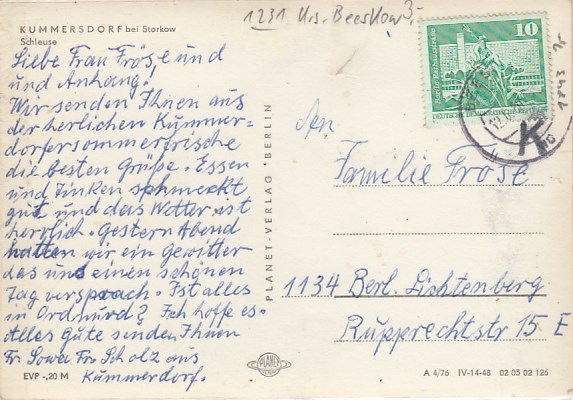 1231 Krs. Beeskow
KUMMERSDORF bei Storkow
Schleuse
Liebe Frau Fröse und
und Anhang!
Wir senden Ihnen aus
der herlichen Kummers-
dorfersommerfrische
die besten Grüße. Essen
und Tinken schmeckt
gut und das Wetter ist
herrlich. Gestern Abend
hatten wir ein Gewitter
das uns einen schönen
Tag versprach. Ist alles
in Ordnung? Ich hoffe es.
Alles Gute senden Ihnen
Fr. Sowa Fr. Scholz aus
Kummerdorf.
EVP -,20 M
PLANET-VERLAG BERLIN
PLANET
10
DEUTSCHE DEMOKRATISCHE REPUBLIK
An
Familie Fröse
1134 Berl. Lichtenberg
Rupprechtstr 15 E
A 4/76 IV-14-48 02 05 02 126